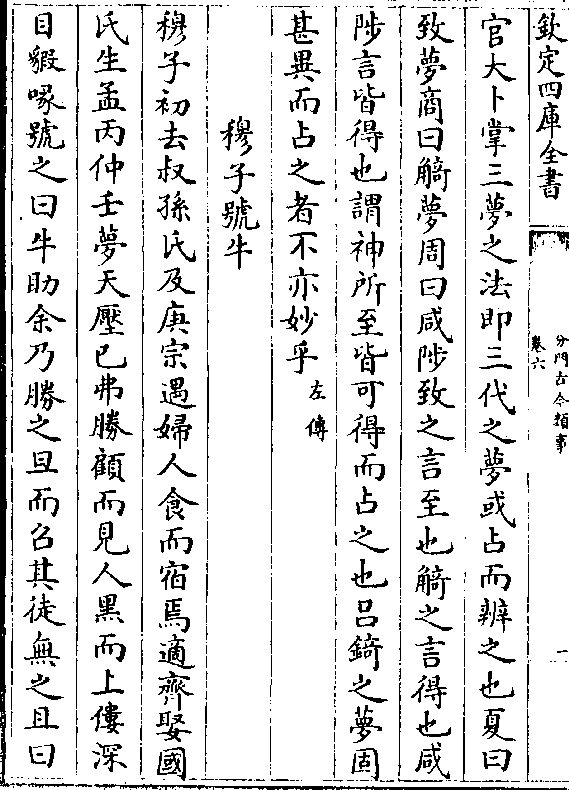 欽定四庫全書
分門古今類事
卷六
一
官大卜掌三夢之法即三代之夢或占而辨之也夏曰
致夢商曰觭夢周曰咸陟致之言至也觭之言得也咸
陟言皆得也謂神所至皆可得而占之也呂錡之夢固
甚異而占之者不亦妙乎左傳
穆子號牛
穆子初去叔孫氏及庚宗遇婦人食而宿焉適齊娶國
氏生孟丙仲壬夢天壓已弗勝顧而見人黑而上僂深
目豭喙號之曰牛助余乃勝之旦而召其徒無之且曰